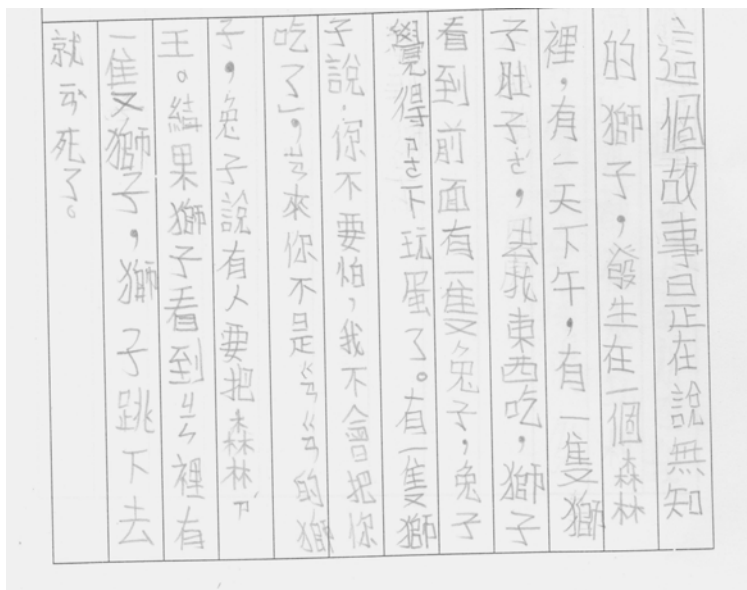 這個故事是正在說無知
的獅子，發生在一個森林
裡，有一天下午，有一隻獅
子肚子ㄜˋ，去找東西吃，獅子
看到前面有一隻兔子，兔子
覺得ㄗㄜˋ下玩蛋了。有一隻獅
子說．你不要怕，我不會把你
吃了」，ㄩㄢˊ來你不是ㄍㄨˊㄍㄨˊ的獅
子，兔子說有人要把森林
王。結果獅子看到ㄐㄧㄥˇ裡有
一隻獅子，獅子跳下去
就死了。